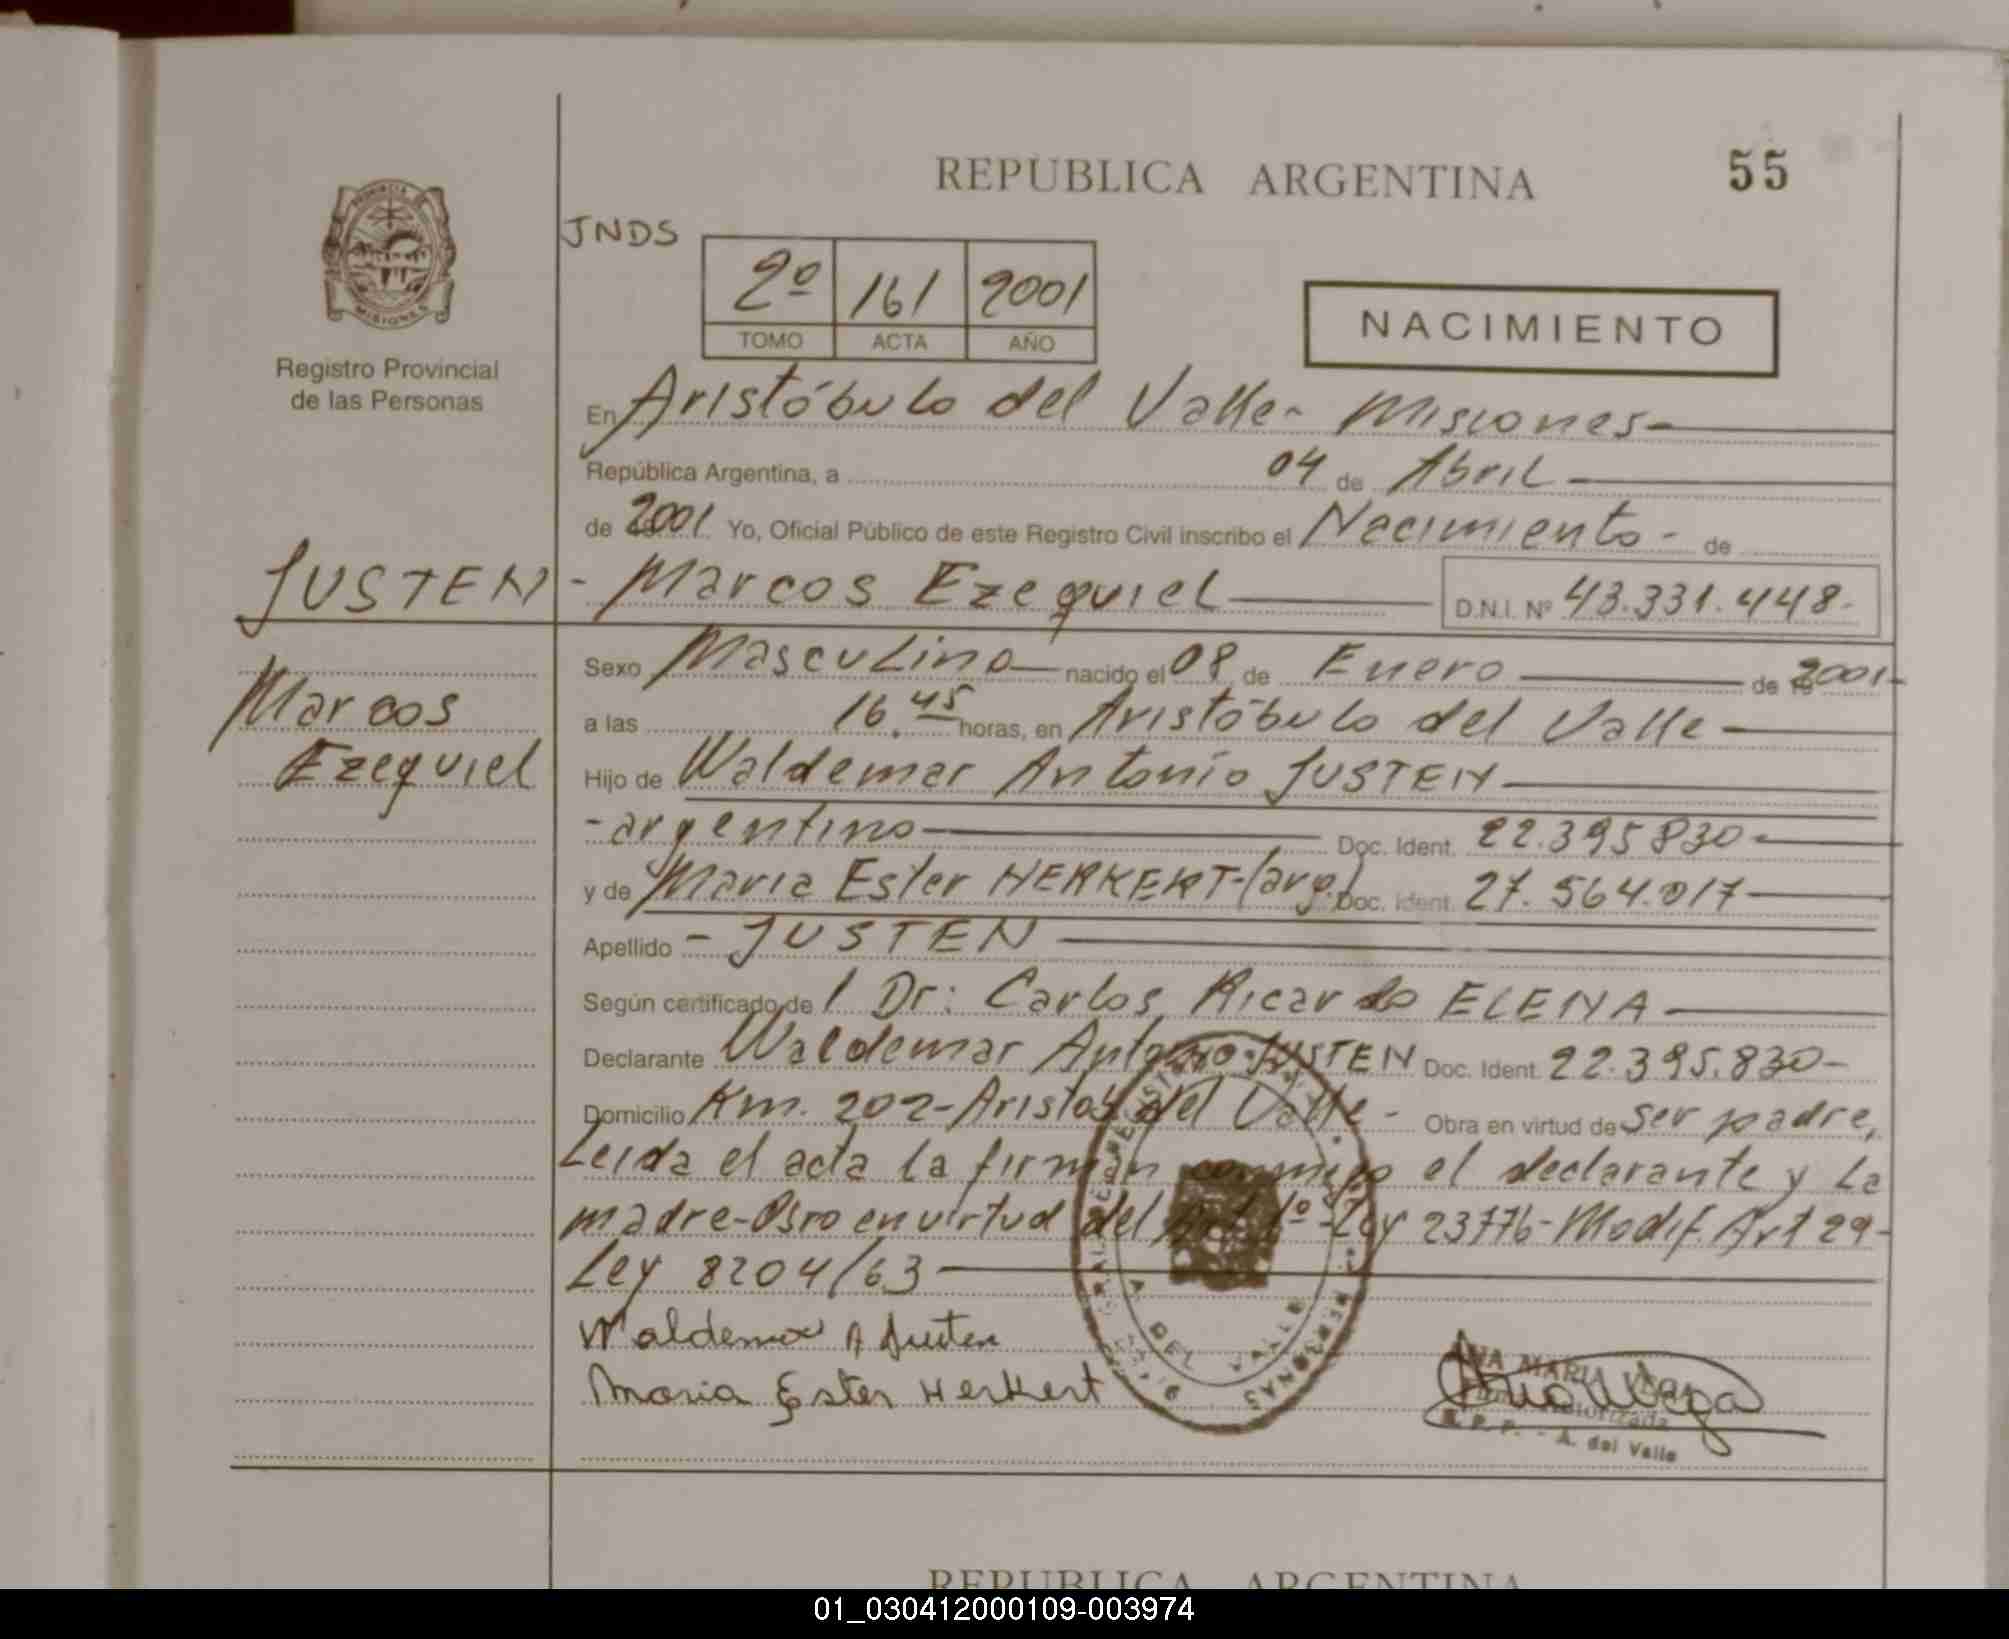 REPUBLICA ARGENTINA
55
PROVINCIA
MISIONES
Registro Provincial
de las Personas
JNDS
2º 161 2001
TOMO ACTA AÑO
NACIMIENTO
En Aristóbulo del Valle - Misiones -
República Argentina, a 04 de Abril
de 2001 Yo, Oficial Público de este Registro Civil inscribo el Nacimiento - de
JUSTEN - Marcos Ezequiel D.N.I. Nº 43.331.448.-
Marcos
Ezequiel
Sexo Masculino nacido el 08 de Enero de 2001-
a las 16.45 horas, en Aristóbulo del Valle
Hijo de Waldemar Antonio JUSTEN
- argentino Doc. Ident. 22.395.830-
y de Maria Ester HERKERT-(arg.) Doc. Ident. 27.564.017
Apellido - JUSTEN
Según certificado de l Dr: Carlos Ricardo ELENA
Declarante Waldemar Antonio JUSTEN Doc. Ident. 22.395.830-
Domicilio Km. 202-Aristob del Valle - Obra en virtud de ser padre,
Leida el acta la firman conmigo el declarante y La
madre-Obro en virtud del Art 1º-Ley 23776-Modif. Art 29-
Ley 8204/63
Waldemar A Justen
Maria Ester Herkert
DEL VALLE
PERSONAS
ANA MARIA VEGA
Autorizada
R. P. P. - A. del Valle
REPUBLICA ARGENTINA
01_030412000109-003974